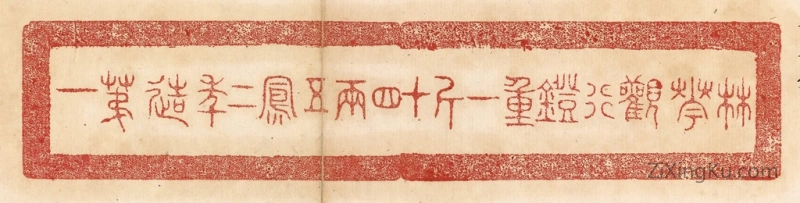 林華觀行鐙重一斤十四兩五鳳二年造第一
ZiXingKu.com